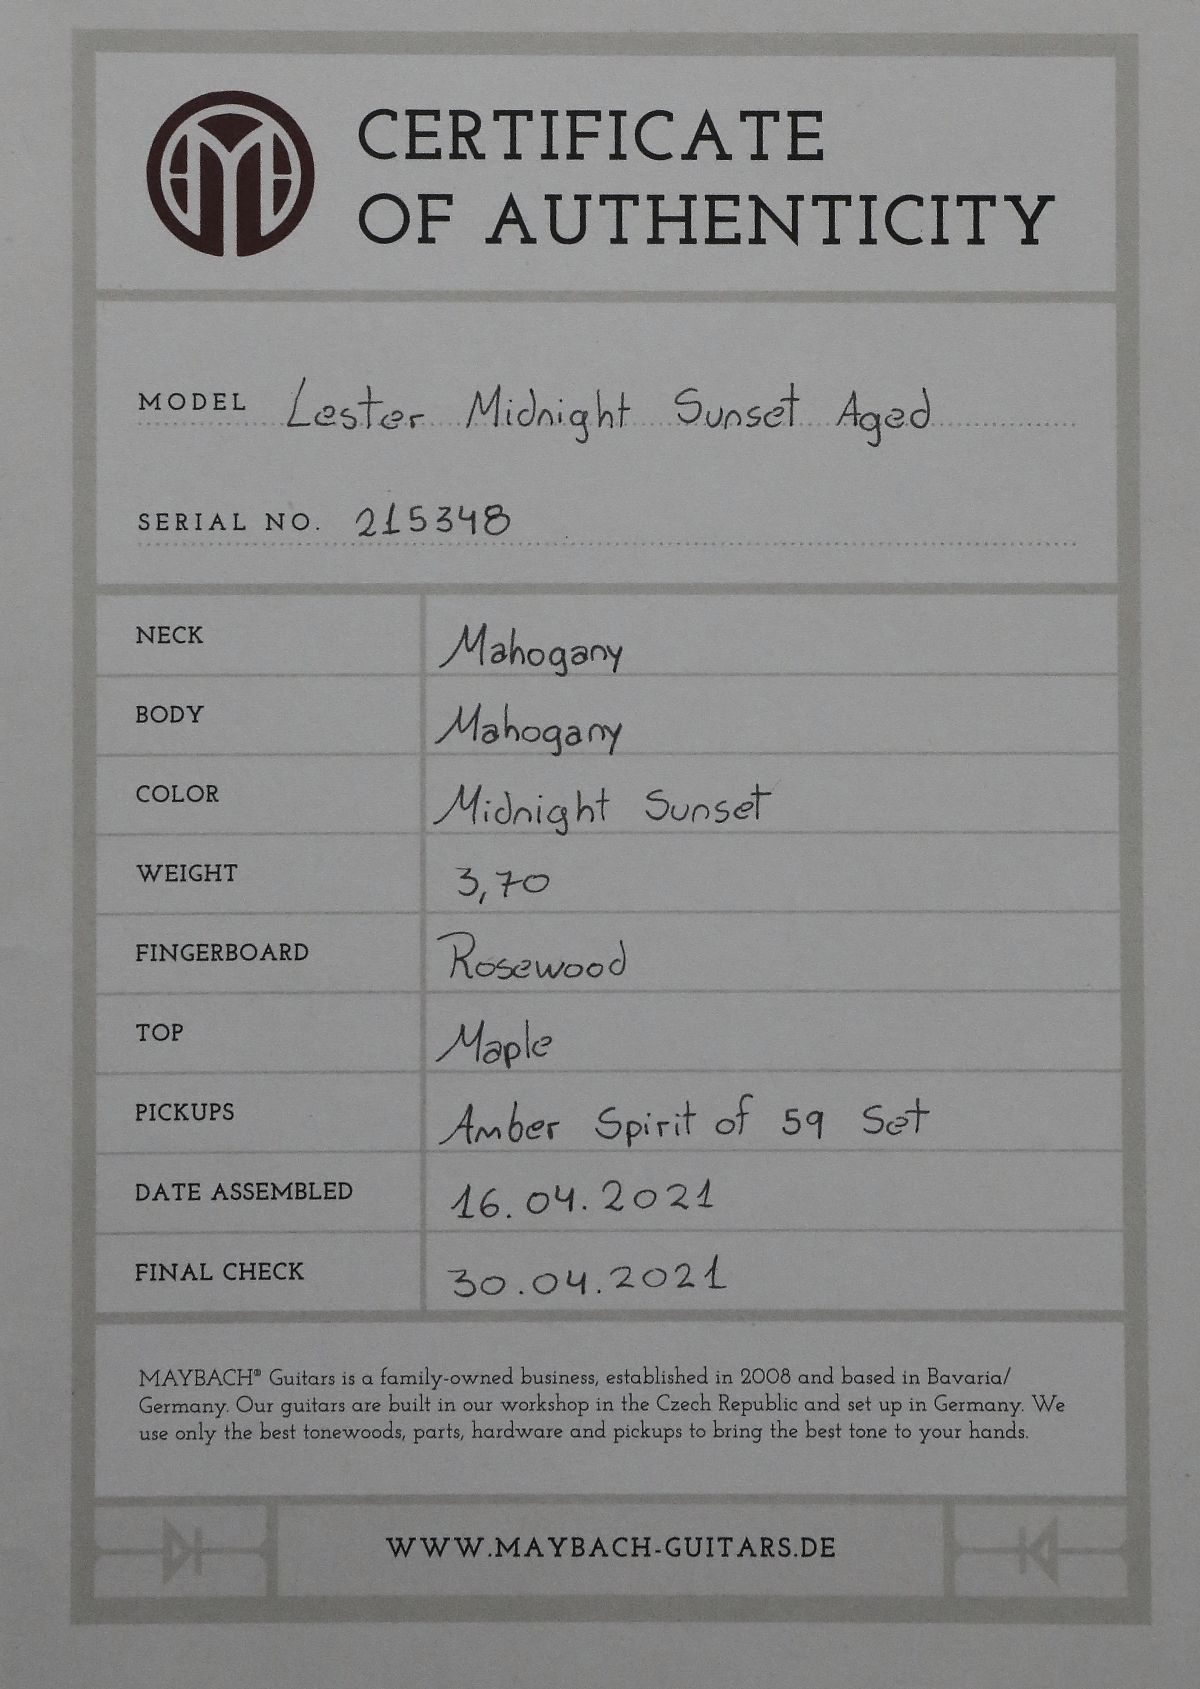 CERTIFICATE
OF AUTHENTICITY
MODEL Lester Midnight Sunset Aged
SERIAL NO. 215348
NECK Mahogany
BODY Mahogany
COLOR Midnight Sunset
WEIGHT 3,70
FINGERBOARD Rosewood
TOP Maple
PICKUPS Amber Spirit of 59 Set
DATE ASSEMBLED 16.04.2021
FINAL CHECK 30.04.2021
MAYBACH® Guitars is a family-owned business, established in 2008 and based in Bavaria/
Germany. Our guitars are built in our workshop in the Czech Republic and set up in Germany. We
use only the best tonewoods, parts, hardware and pickups to bring the best tone to your hands.
WWW.MAYBACH-GUITARS.DE